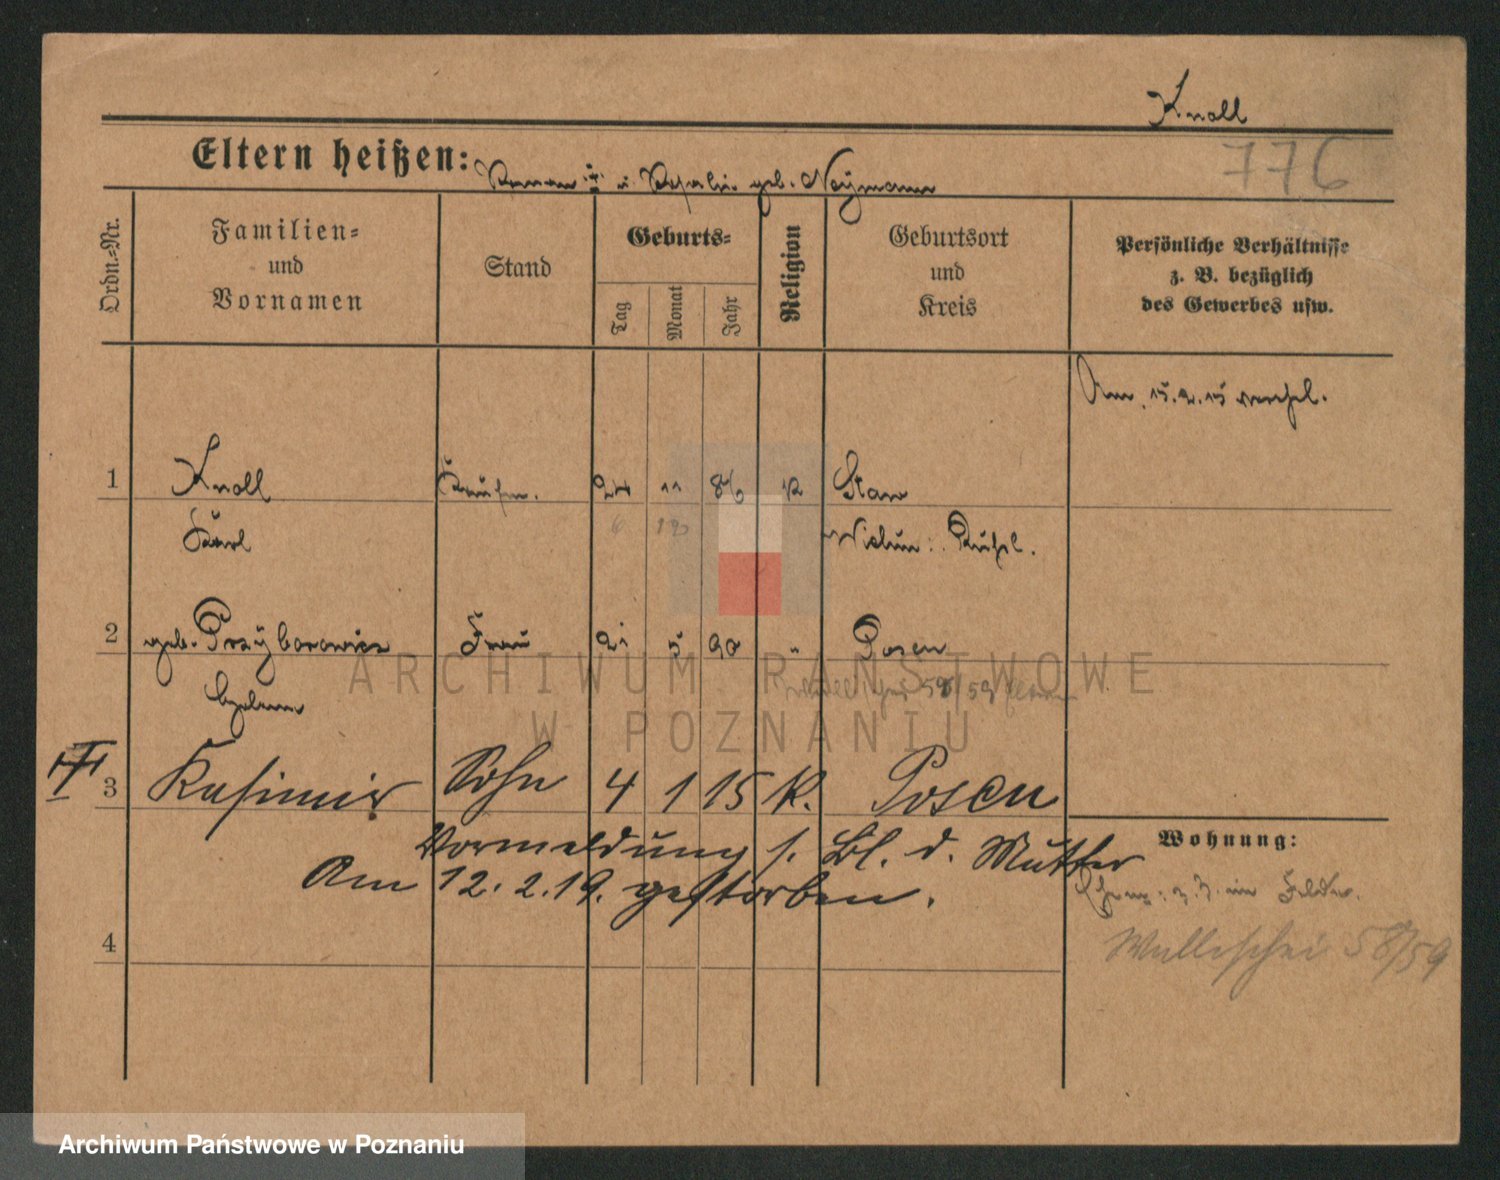 Knoll
776
Eltern heißen: u. geb. Neÿmann
Ordn.-Nr.
Familien-
und
Vornamen
Stand
Geburts-
Tag
Monat
Jahr
Religion
Geburtsort
und
Kreis
Persönliche Verhältnisse
z. B. bezüglich
des Gewerbes usw.
Am 15.2.15 verehel.
1 Knoll Kaufm. 24 11 86 K Staw
Karl
6 12
2 geb. Przÿborowicz Frau 21 5 90 " Posen
58/59
3 Kasimir Sohn 4 1 15 K. Posen
Vormeldung s. Bl. d. Mutter
Am 12.2.19. gestorben.
Wohnung:
z. Z. im Felde.
Wallischei 58/59
4
ARCHIWUM PAŃSTWOWE
W POZNANIU
Archiwum Państwowe w Poznaniu